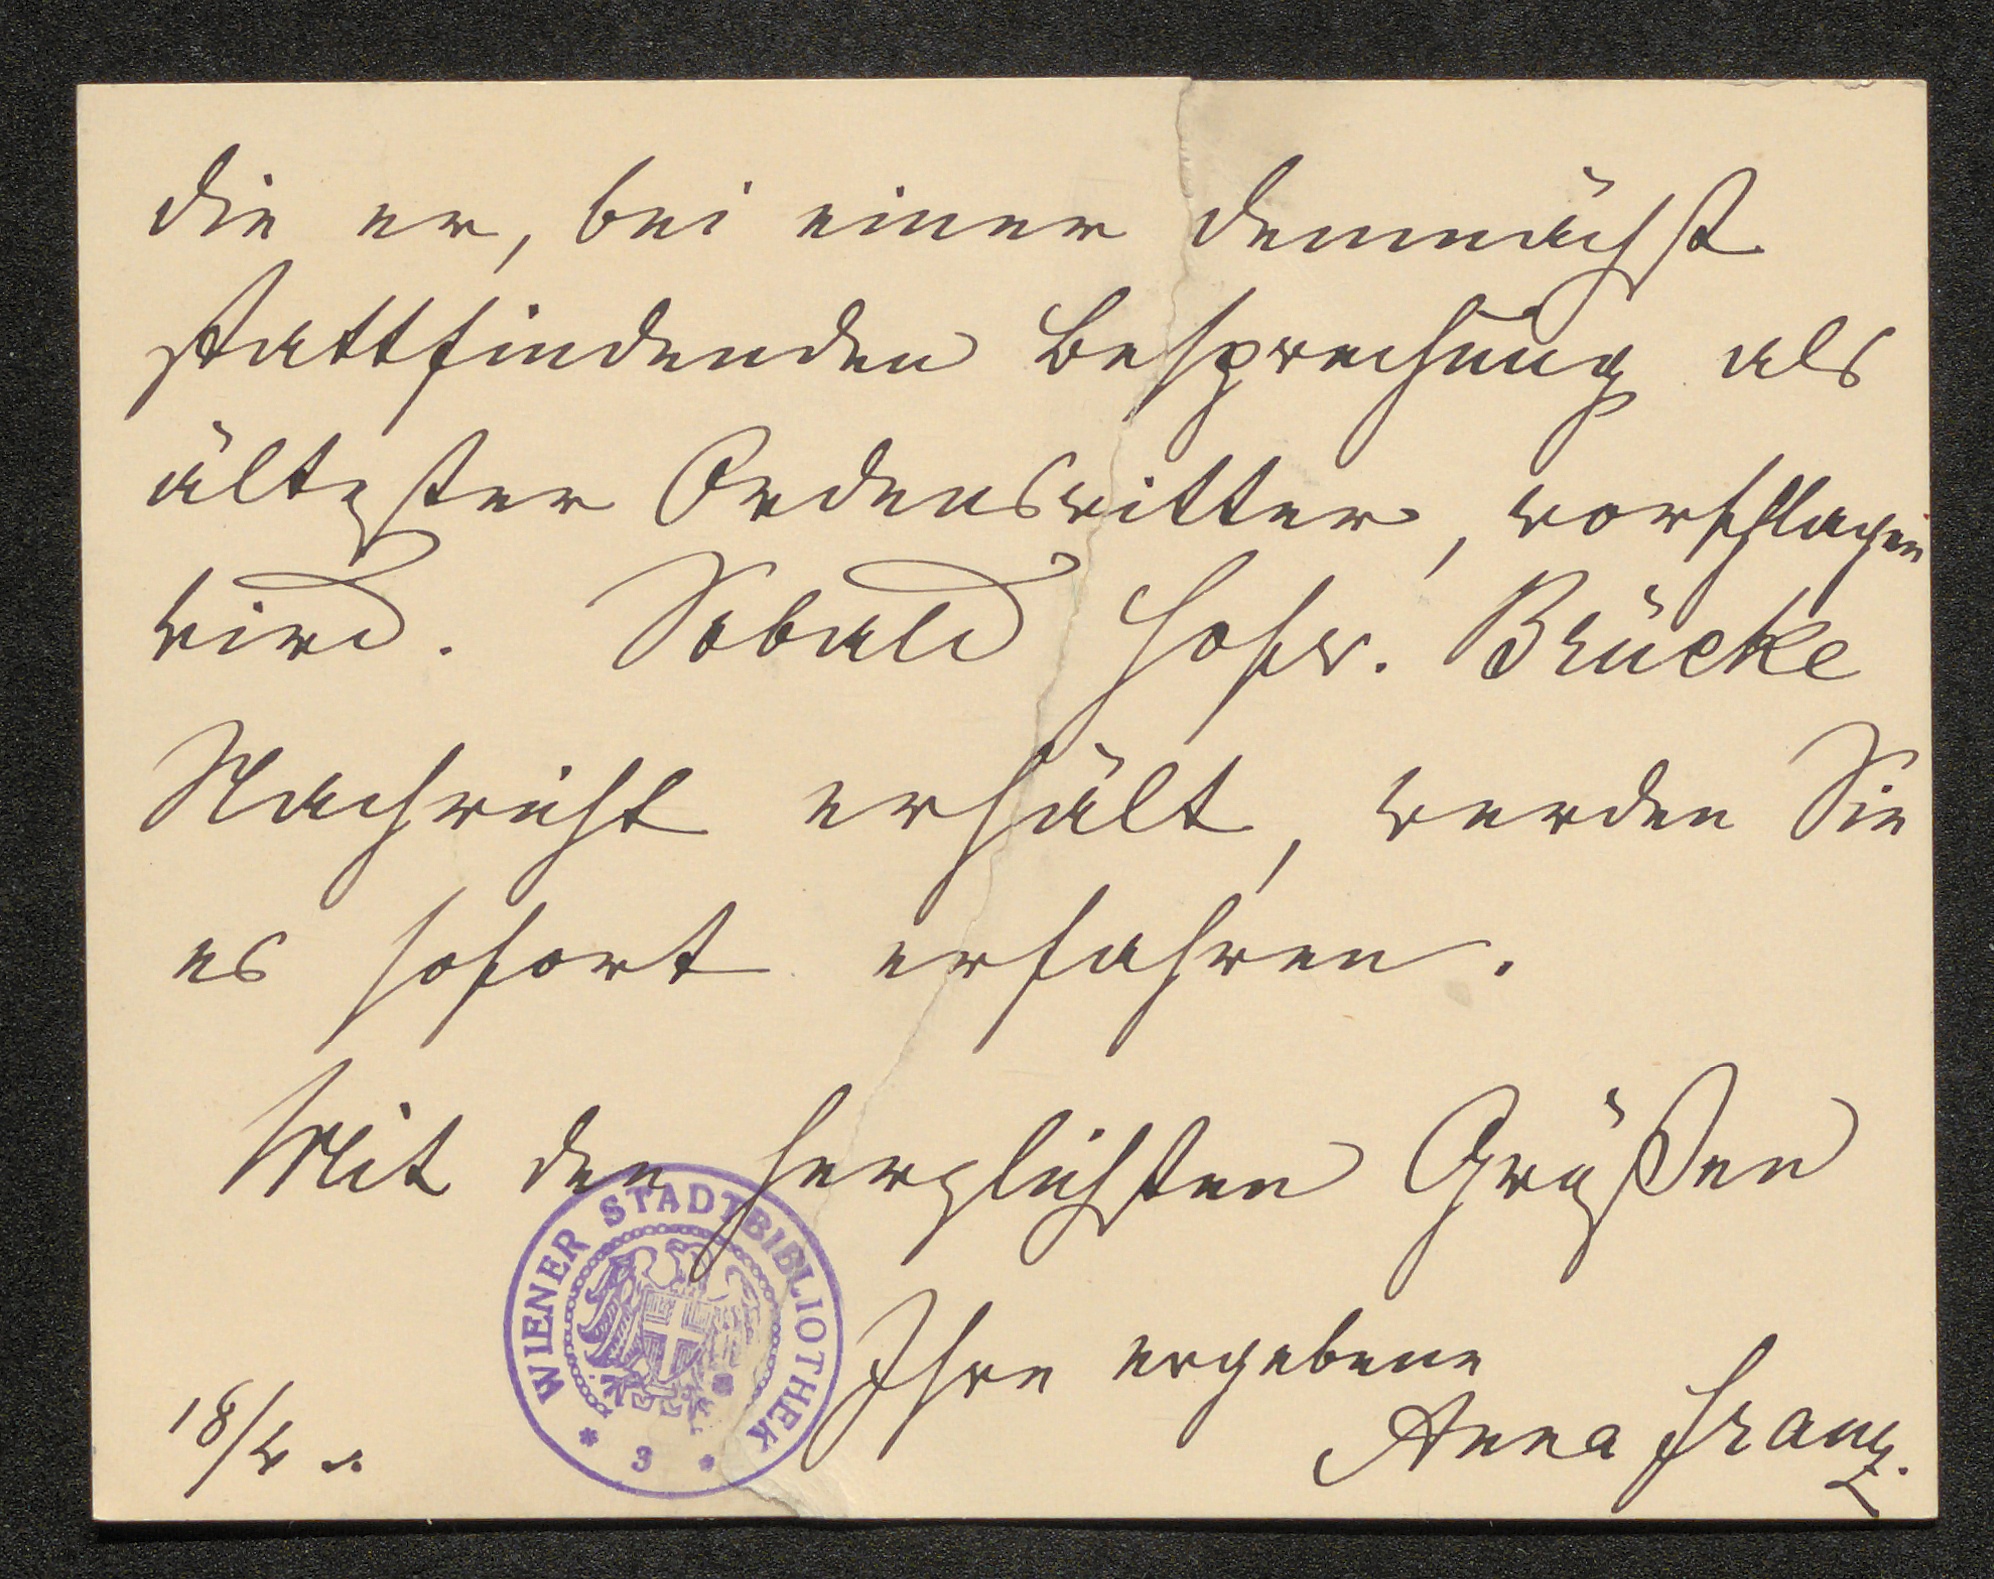 die er, bei einer demnächst
stattfindenden Besprechung als
ältester Ordensritter, vorschlagen
wird. Sobald Hofr. Brücke
Nachricht erhält, werden Sie
es sofort erfahren.
Mit den herzlichsten Grüßen
Ihre ergebene
Anna Franz.
18/
WIENER STADTBIBLIOTHEK
* 3 *